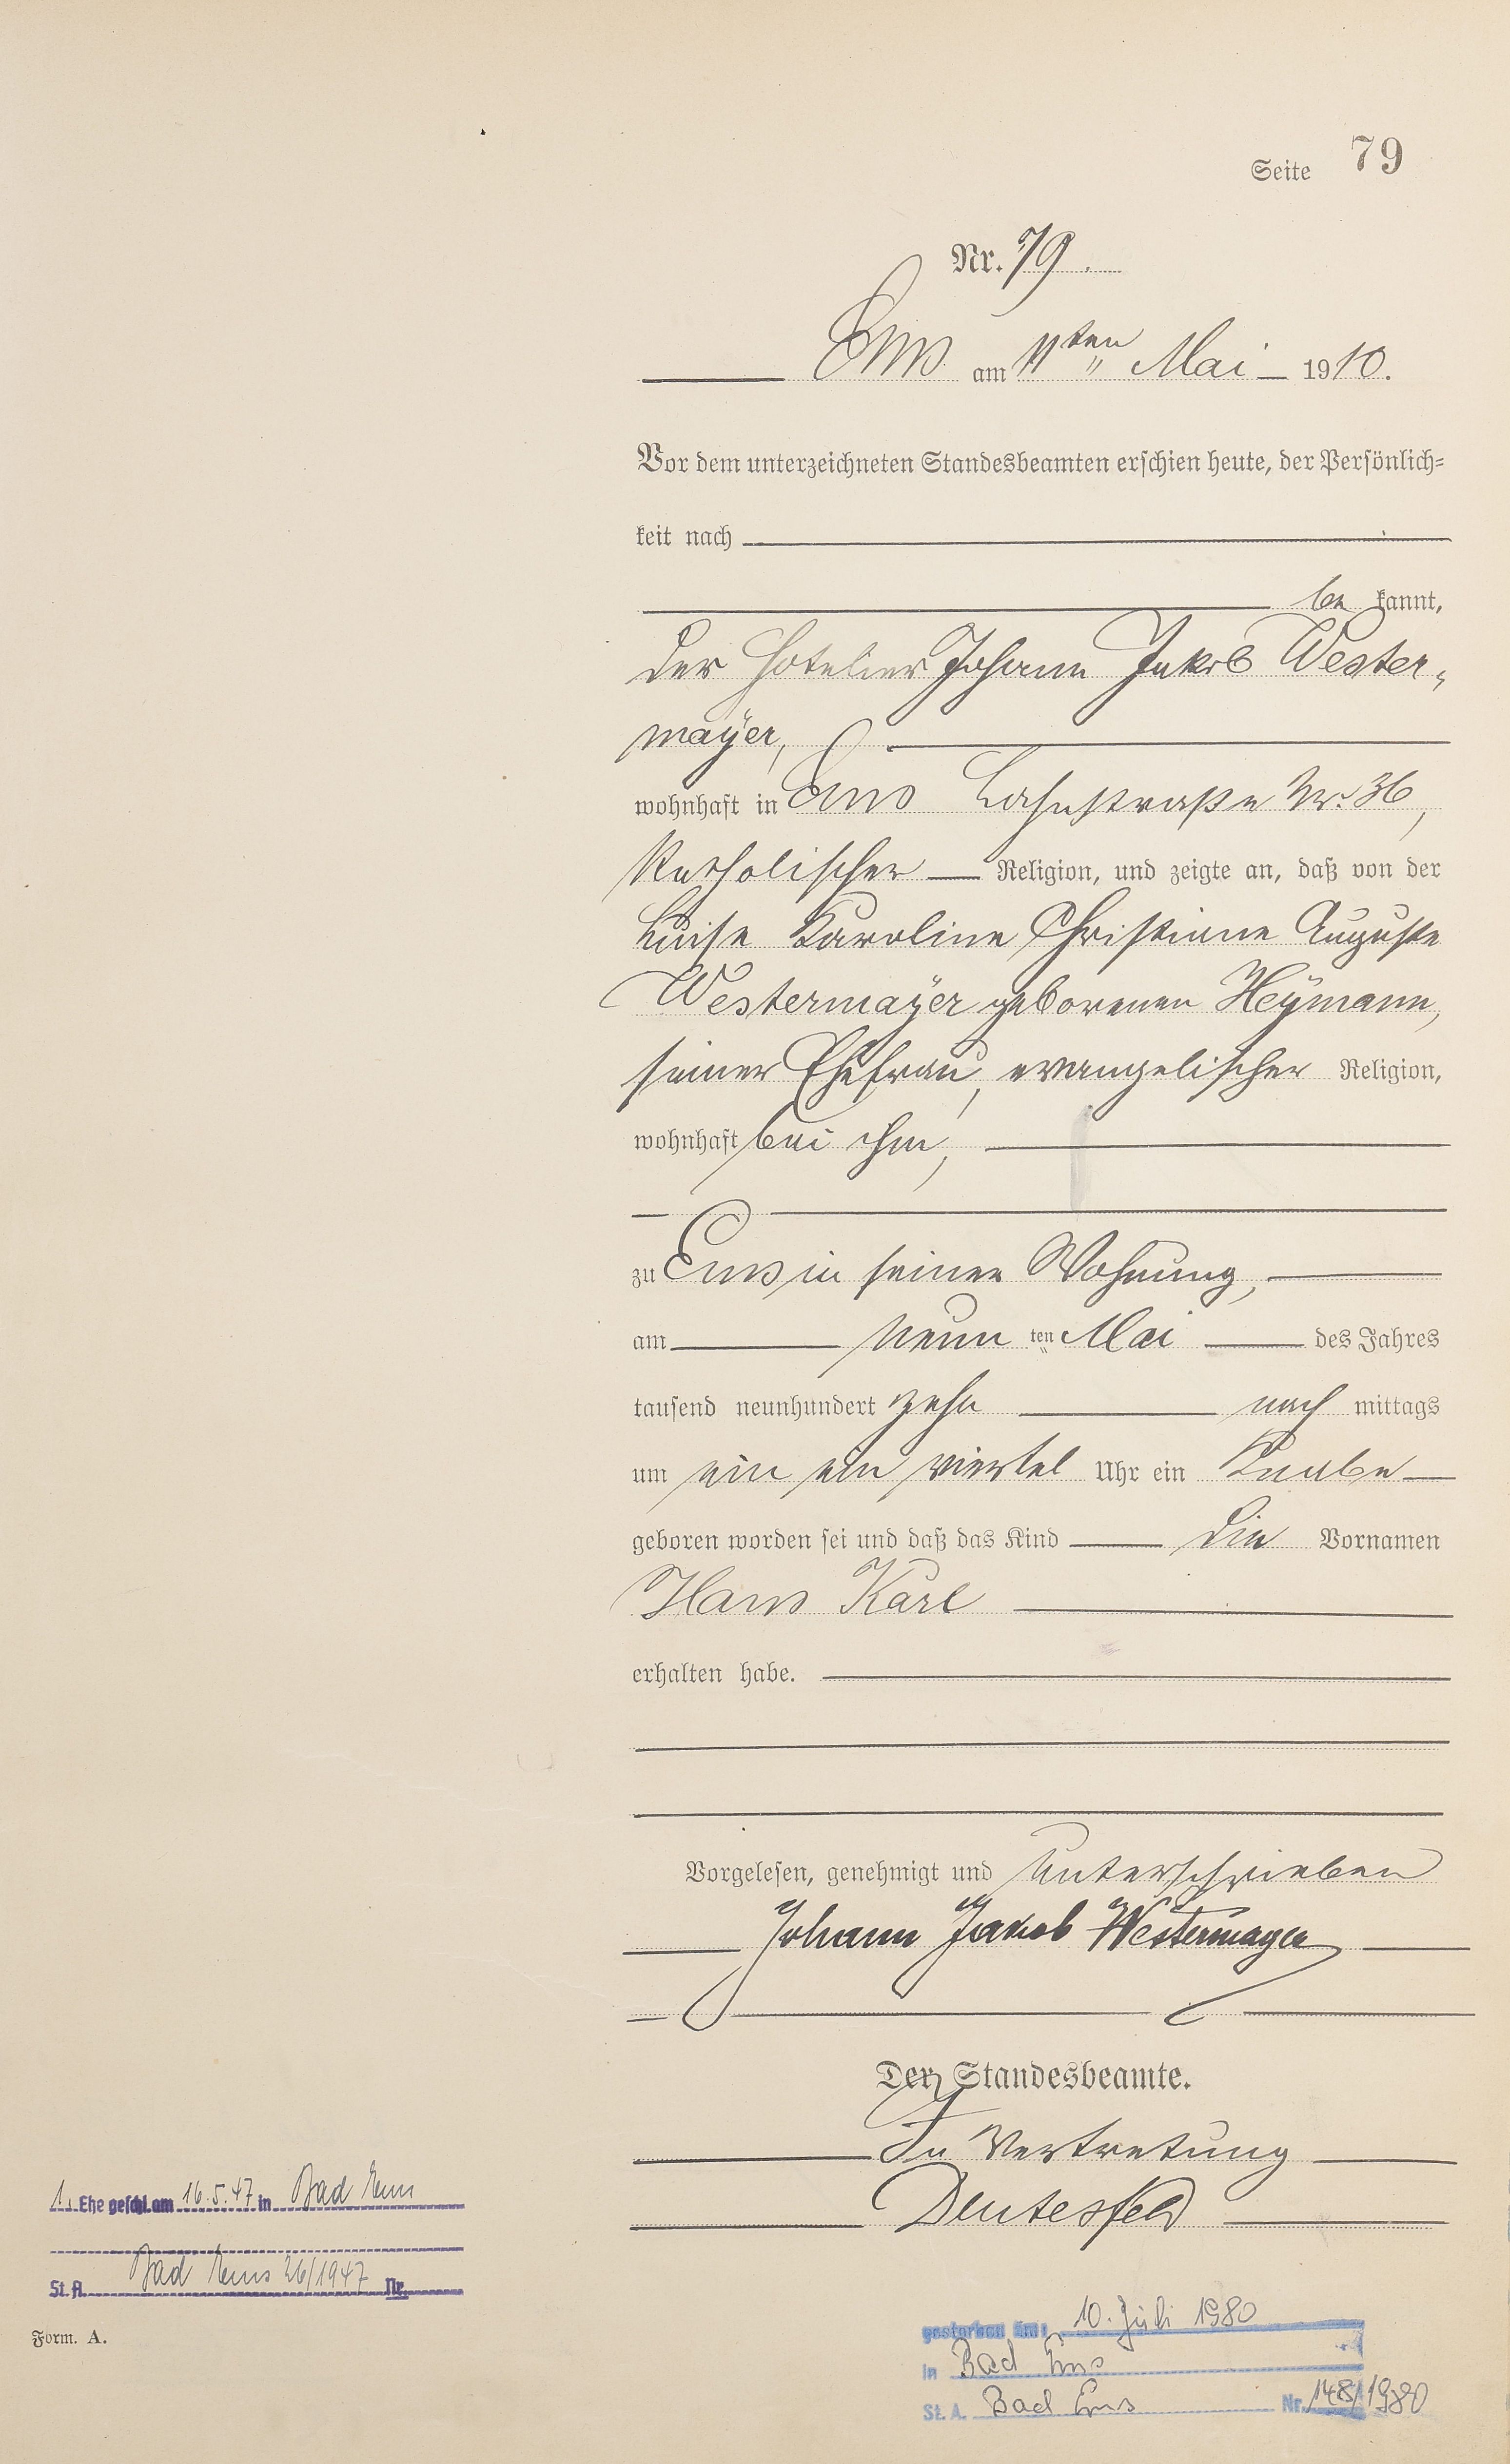 Seite 79
Nr. 79.
Ems am 11ten Mai 1910.
Vor dem unterzeichneten Standesbeamten erschien heute, der Persönlich=
keit nach
be kannt,
der Hotelier Johann Jakob Wester-
mayer,
wohnhaft in Ems Lahnstraße Nr. 36,
katholischer Religion, und zeigte an, daß von der
Luise Karoline Christiane Auguste
Westermayer geborenen Heymann,
seiner Ehefrau, evangelischer Religion,
wohnhaft bei ihm,
zu Ems in seiner Wohnung,
am neun ten Mai des Jahres
tausend neunhundert zehn nach mittags
um ein ein viertel Uhr ein Knabe
geboren worden sei und daß das Kind die Vornamen
Hans Karl
erhalten habe.
Vorgelesen, genehmigt und unterschrieben
Johann Jakob Westermayer
Der Standesbeamte.
In Vertretung
1. Ehe geschl. am 16.5.47 in Bad Ems
St. A. Bad Ems 26/1947 Nr.
Form. A.
gestorben am: 10. Juli 1980
in Bad Ems
St. A. Bad Ems Nr. 148/1980